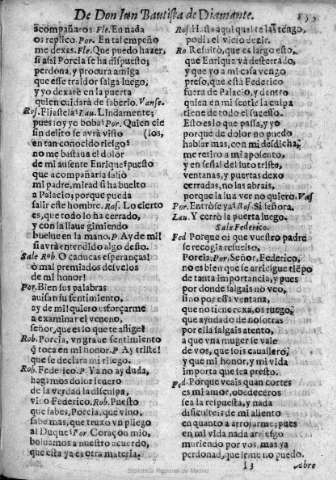 De Don Iuan Bautista de Diamante.
acompañaros. Fle. En nada
os replico. Por. En tal empeño
me dexas. Fle. Que puedo hazer,
si assi Porcia se ha dispuesto;
perdona, y procura amiga
que esse traidor salga luego,
y yo dexarè en la puerta
quien cuidará de saberlo. Vanse.
Ros. Fiasela? Lau. Lindamente;
pues soy yo boba? Por. Quien
sin delito se avrà visto
en tan conocido riesgo?
no me bastava el dolor
de mi ausente Enrique? puesto
que acompañarla salió
mi padre, mirad si ha buelto
a Palacio; porque pueda
salir este hombre. Ros. Lo cierto
es, que todo lo ha cerrado,
y con la llave gimiendo
buelue en la mano. P. Ay de mi!
si avrà entendido algo desto.
Sale Rob. O caducas esperanças!
ò mal premiados desvelos
de mi honor!
Por. Bien sus palabras
auisan su sentimiento,
ay de mi! quiero esforçarme
a examinar el veneno,
señor, que es lo que te aflige?
Rob. Porcia, vn graue sentimiento
q̃ toca en mi honor. P. Ay triste!
que se declara mi riesgo.
Rob. Federico. P. Ya no ay duda,
hagamos dolor
de la verdad la disculpa,
vino Federico. Rob. Puesto
que sabes, Porcia, que vino,
sabe mas, que truxo vn pliego
al Duque. Por. Coraçon mio,
boluamos a nuestro acuerdo,
que esta ya es otra materia,
Ros. Hasta aqui qual se las tengo
Ro. Resultò, que es largo esto,
que Enrique và desterrado,
y que yo a mi casa vengo
preso, que està Federico
fuera de Palacio, y dentro
quien en mi sentir la culpa
tiene de todo el sucesso.
Esto es lo que passa, y yo
porque de dolor no puedo
hablar mas, con mi desdicha
me retiro a mi aposento,
y en señal del luto triste,
ventanas, y puertas dexo
cerradas, no las abrais,
porque la luz ver no quiero. Vas
Por. Entrose ya? Ros. Si señora.
Lau. Y cerrò la puerta luego.
Sale Federico.
Fed. Porque oì que vuestro padre
se recogía resuelto,
Porcia. Por. Señor, Federico,
no es bien que se arriesgue tiẽpo
de tanta importancia, y pues
por donde salgais no veo,
sino por essa ventana,
que no tiene rexa, os ruego,
que ayudado de nosotras
por ella salgais atento,
a que vna muger se vale
de vos, que sois cauallero,
y que mi honor, y mi vida
importa que sea presto.
Fed. Porque veais quan cortès
es mi amor, obedeceros
sea la respuesta, y nada
discurre de mi aliento
en quanto a arrojarme; pues
en mi vida nada arriesgo
muriendo por vos, mas ya
perdonad, que irme no puedo.